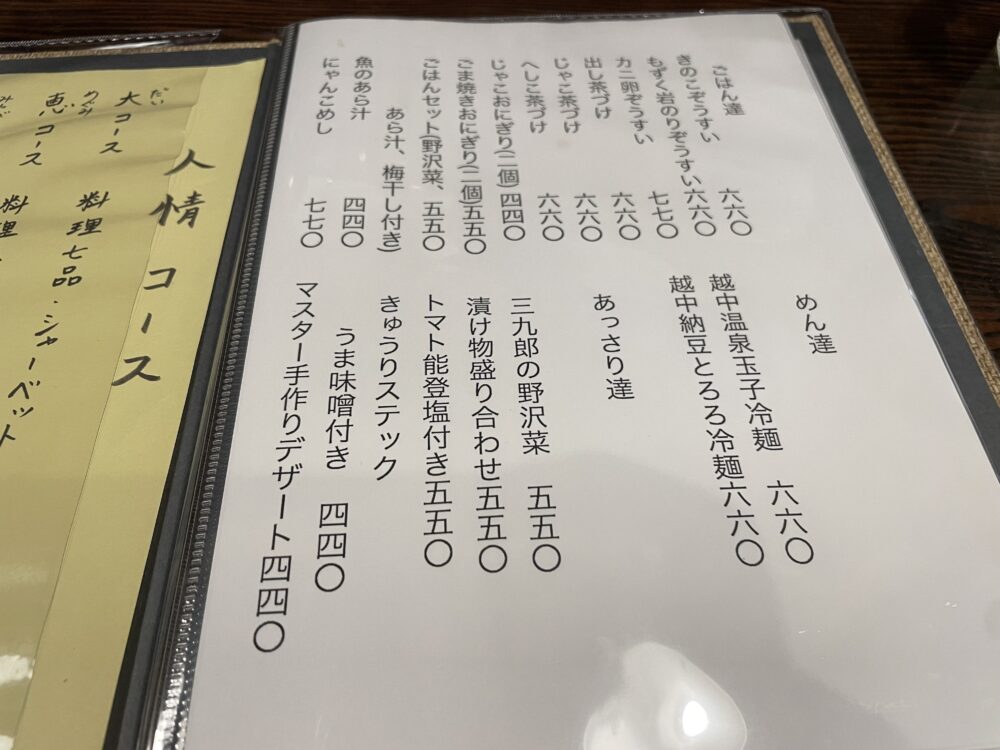 ごはん達
きのこぞうすい 六六〇
もずく岩のりぞうすい 六六〇
カニ卵ぞうすい 七七〇
出し茶づけ 六六〇
じゃこ茶づけ 六六〇
へしこ茶づけ 六六〇
じゃこおにぎり(二個) 四四〇
ごま焼きおにぎり(二個) 五五〇
ごはんセット(野沢菜、 五五〇
あら汁、梅干し付き)
魚のあら汁 四四〇
にゃんこめし 七七〇
めん達
越中温泉玉子冷麺 六六〇
越中納豆とろろ冷麺 六六〇
あっさり達
三九郎の野沢菜 五五〇
漬け物盛り合わせ 五五〇
トマト能登塩付き 五五〇
きゅうりステック
うま味噌付き 四四〇
マスター手作りデザート 四四〇
人情コース
だい
大コース 料理七品・シャーベット
めぐみ
恵コース 料理